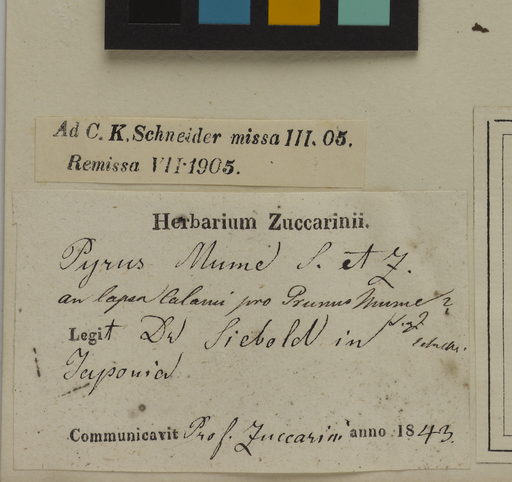 Ad C. K. Schneider missa III. 05.
Remissa VII 1905.
Herbarium Zuccarinii.
Pyrus Mume S. et Z.
an lapsu Calami pro Prunus Mume?
Legit Dr Siebold in
Japonia
Communicavit Prof. Zuccarini anno 1843.